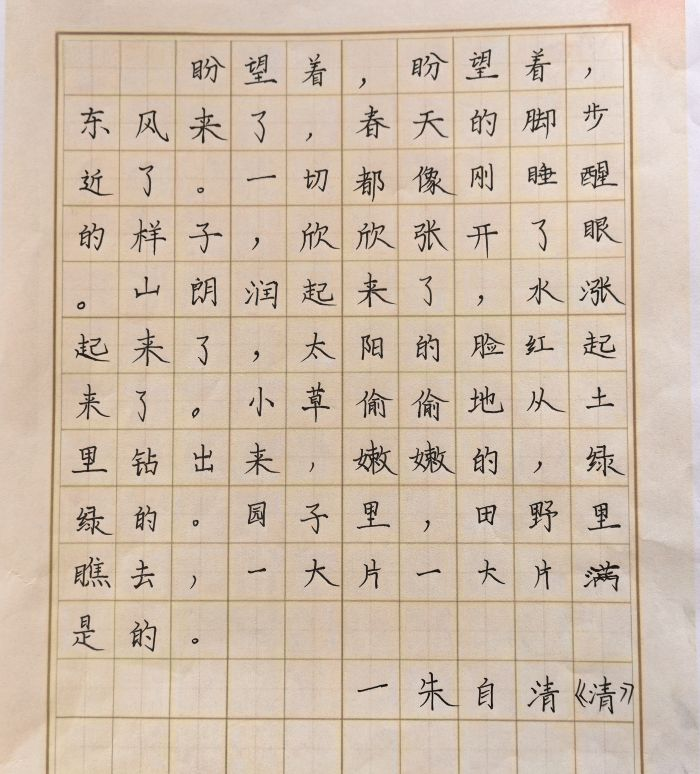 盼望着，盼望着，
东风来了，春天的脚步
近了。一切都像刚睡醒
的样子，欣欣张开了眼
。山朗润起来了，水涨
起来了，太阳的脸红起
来了。小草偷偷地从土
里钻出来，嫩嫩的，绿
绿的。园子里，田野里
瞧去，一大片一大片满
是的。
一朱自清《清》